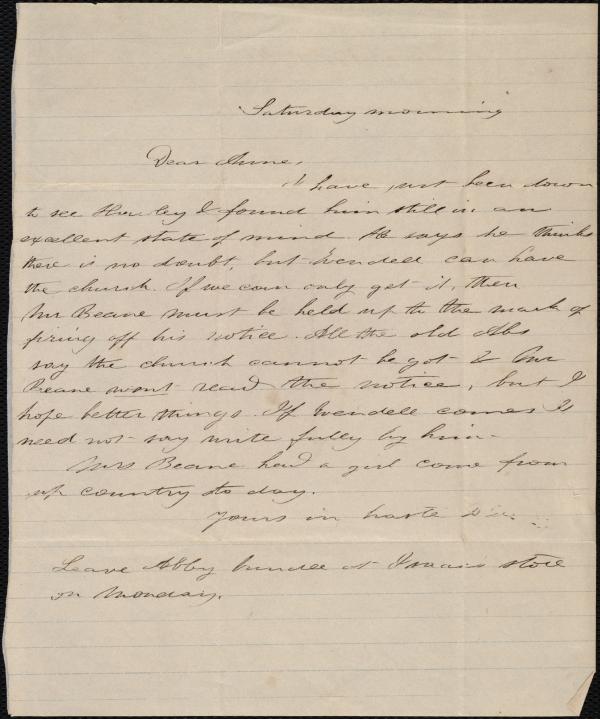 Saturday morning
Dear Anne,
I have just been down
to see Hawley & found him still in an
excellent state of mind. He says he thinks
there is no doubt, but Wendell can have
the church. If we can only get it, then
Mr Beane must be held up to the mark of
firing off his notice. All the old Abs
say the church cannot be got & Mr
Beane wont read the notice, but I
hope better things. If Wendell comes I
need not say write fully by him.
Mrs Beane had a girl come from
up country to day.
Yours in haste
Leave Abby bundle at store
on Monday.